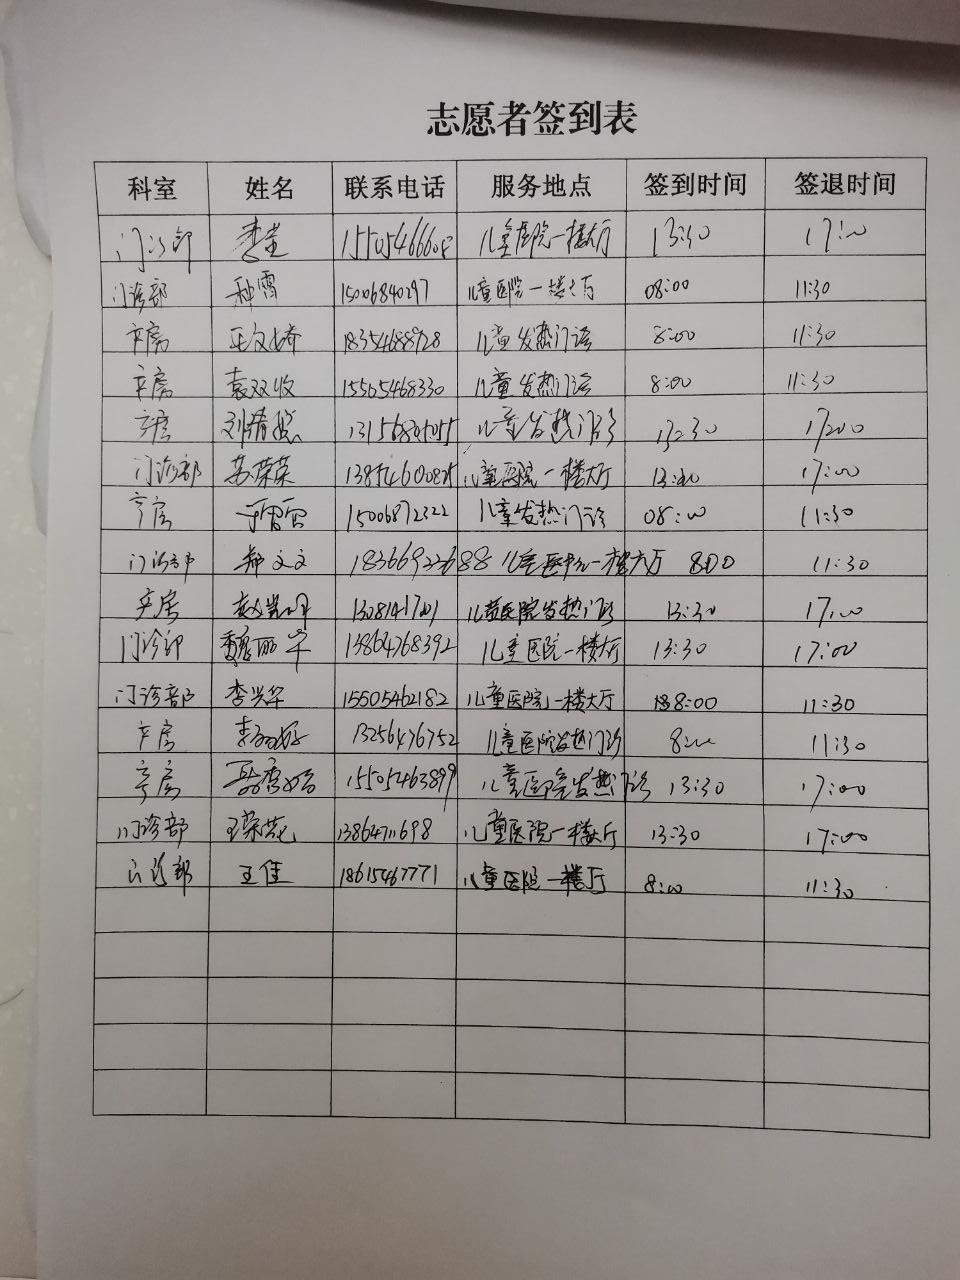 志愿者签到表
科室 姓名 联系电话 服务地点 签到时间 签退时间
门诊部 儿童医院一楼大厅 13:30 17:00
门诊部 儿童医院一楼大厅 08:00 11:30
产房 18354688928 儿童发热门诊 8:00 11:30
产房 袁双收 15505468330 儿童发热门诊 8:00 11:30
产房 儿童发热门诊 13:30 17:00
门诊部 苏荣荣 儿童医院一楼大厅 13:30 17:00
产房 15006872322 儿童发热门诊 08:00 11:30
门诊部 郑文文 18366922688 儿童医院一楼大厅 8:00 11:30
产房 儿童医院发热门诊 13:30 17:00
门诊部 魏丽华 13864768392 儿童医院一楼大厅 13:30 17:00
门诊部 李兴华 15505462182 儿童医院一楼大厅 8:00 11:30
产房 13256476752 儿童医院发热门诊 8:00 11:30
产房 15505463899 儿童医院发热门诊 13:30 17:00
门诊部 儿童医院一楼大厅 13:30 17:00
门诊部 王佳 18615467771 儿童医院一楼厅 8:00 11:30